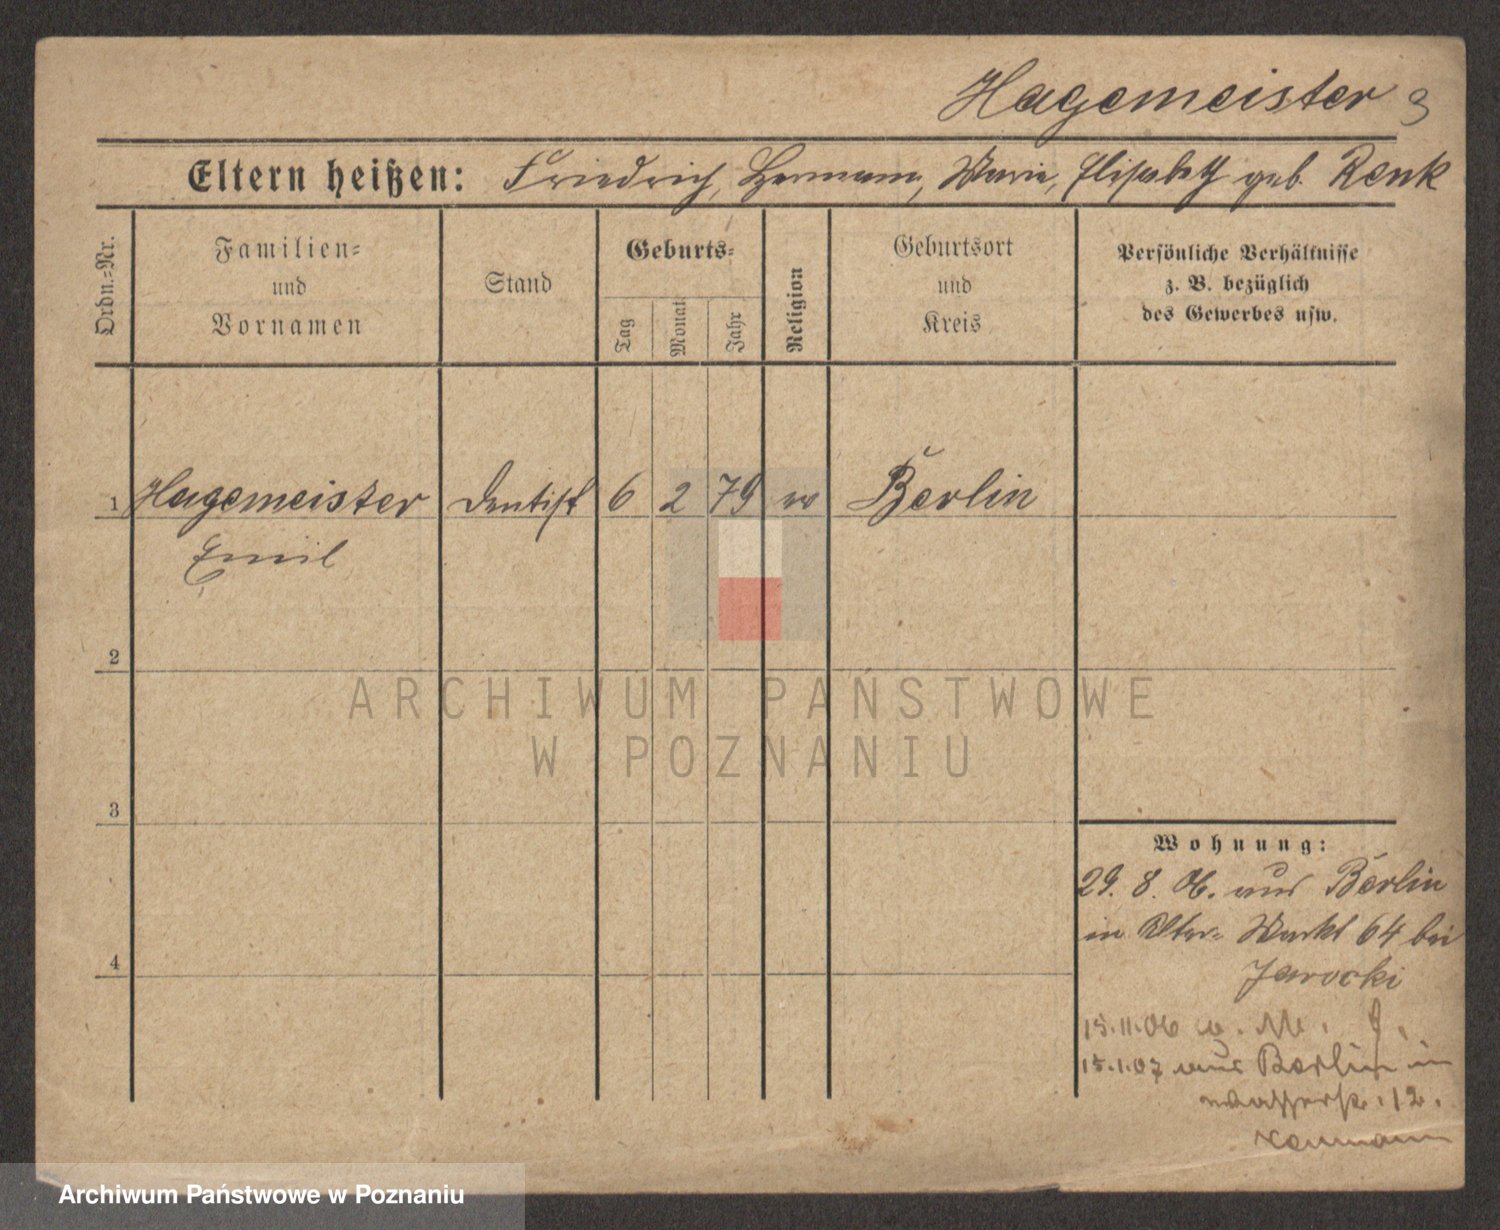 Hagemeister 3
Eltern heißen: Friedrich, Hermann, Marie, Elisabeth geb. Renk
Ordn.-Nr.
Familien-
und
Vornamen
Stand
Geburts-
Tag
Monat
Jahr
Religion
Geburtsort
und
Kreis
Persönliche Verhältnisse
z. B. bezüglich
des Gewerbes usw.
1 Hagemeister Dentist 6 2 79 Berlin
Emil
2
3
4
Wohnung:
29. 8. 06. aus Berlin
in Alter- Markt 64 bei
Jarocki
15.11.06
15.1.07 aus Berlin in
Wasserstr. 12.
ARCHIWUM PAŃSTWOWE
W POZNANIU
Archiwum Państwowe w Poznaniu